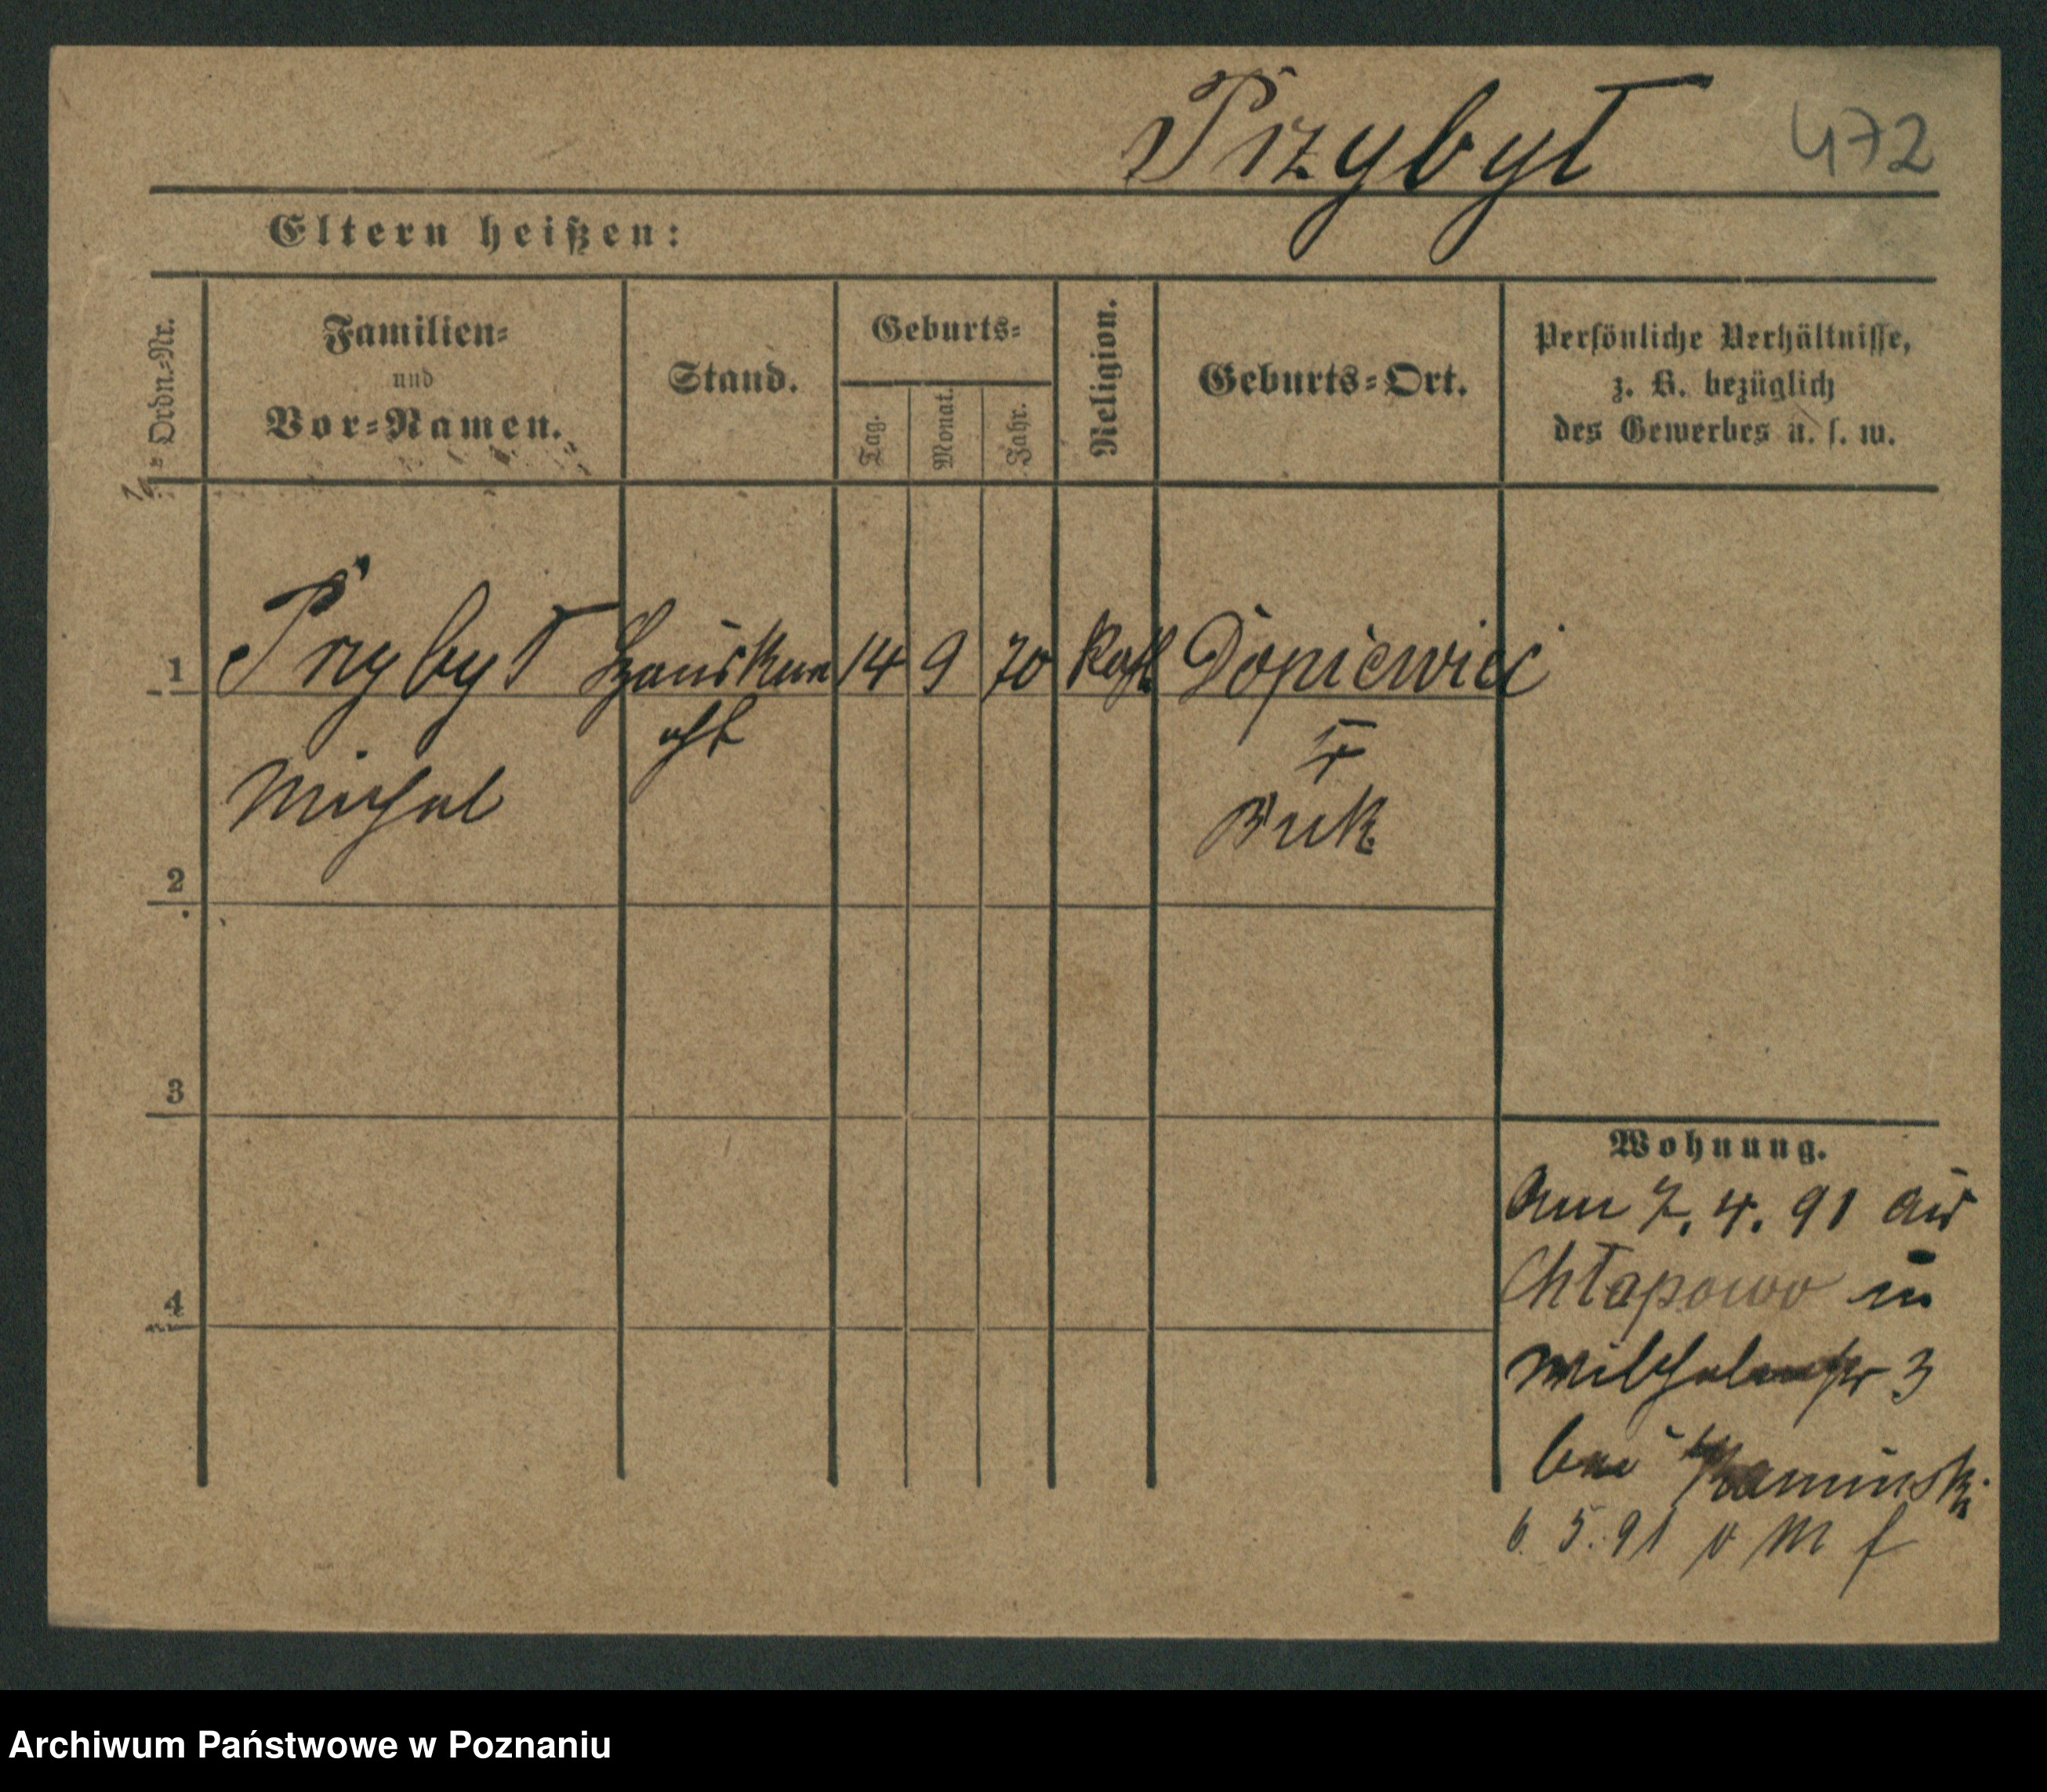 Przybył 472
Eltern heißen:
Ordn.-Nr.
Familien-
und
Vor-Namen.
Stand.
Geburts-
Tag.
Monat.
Jahr.
Religion.
Geburts-Ort.
Persönliche Verhältnisse,
z. B. bezüglich
des Gewerbes u. s. w.
1 Przybył 14 9 70 Kath Dopiewiec
Michal
Buk
2
3
4
Wohnung.
Am 7. 4. 91 aus
Chłapowo in
Wilhelmstr 3
bei Kaminski
6. 5. 91 v M f
Archiwum Państwowe w Poznaniu